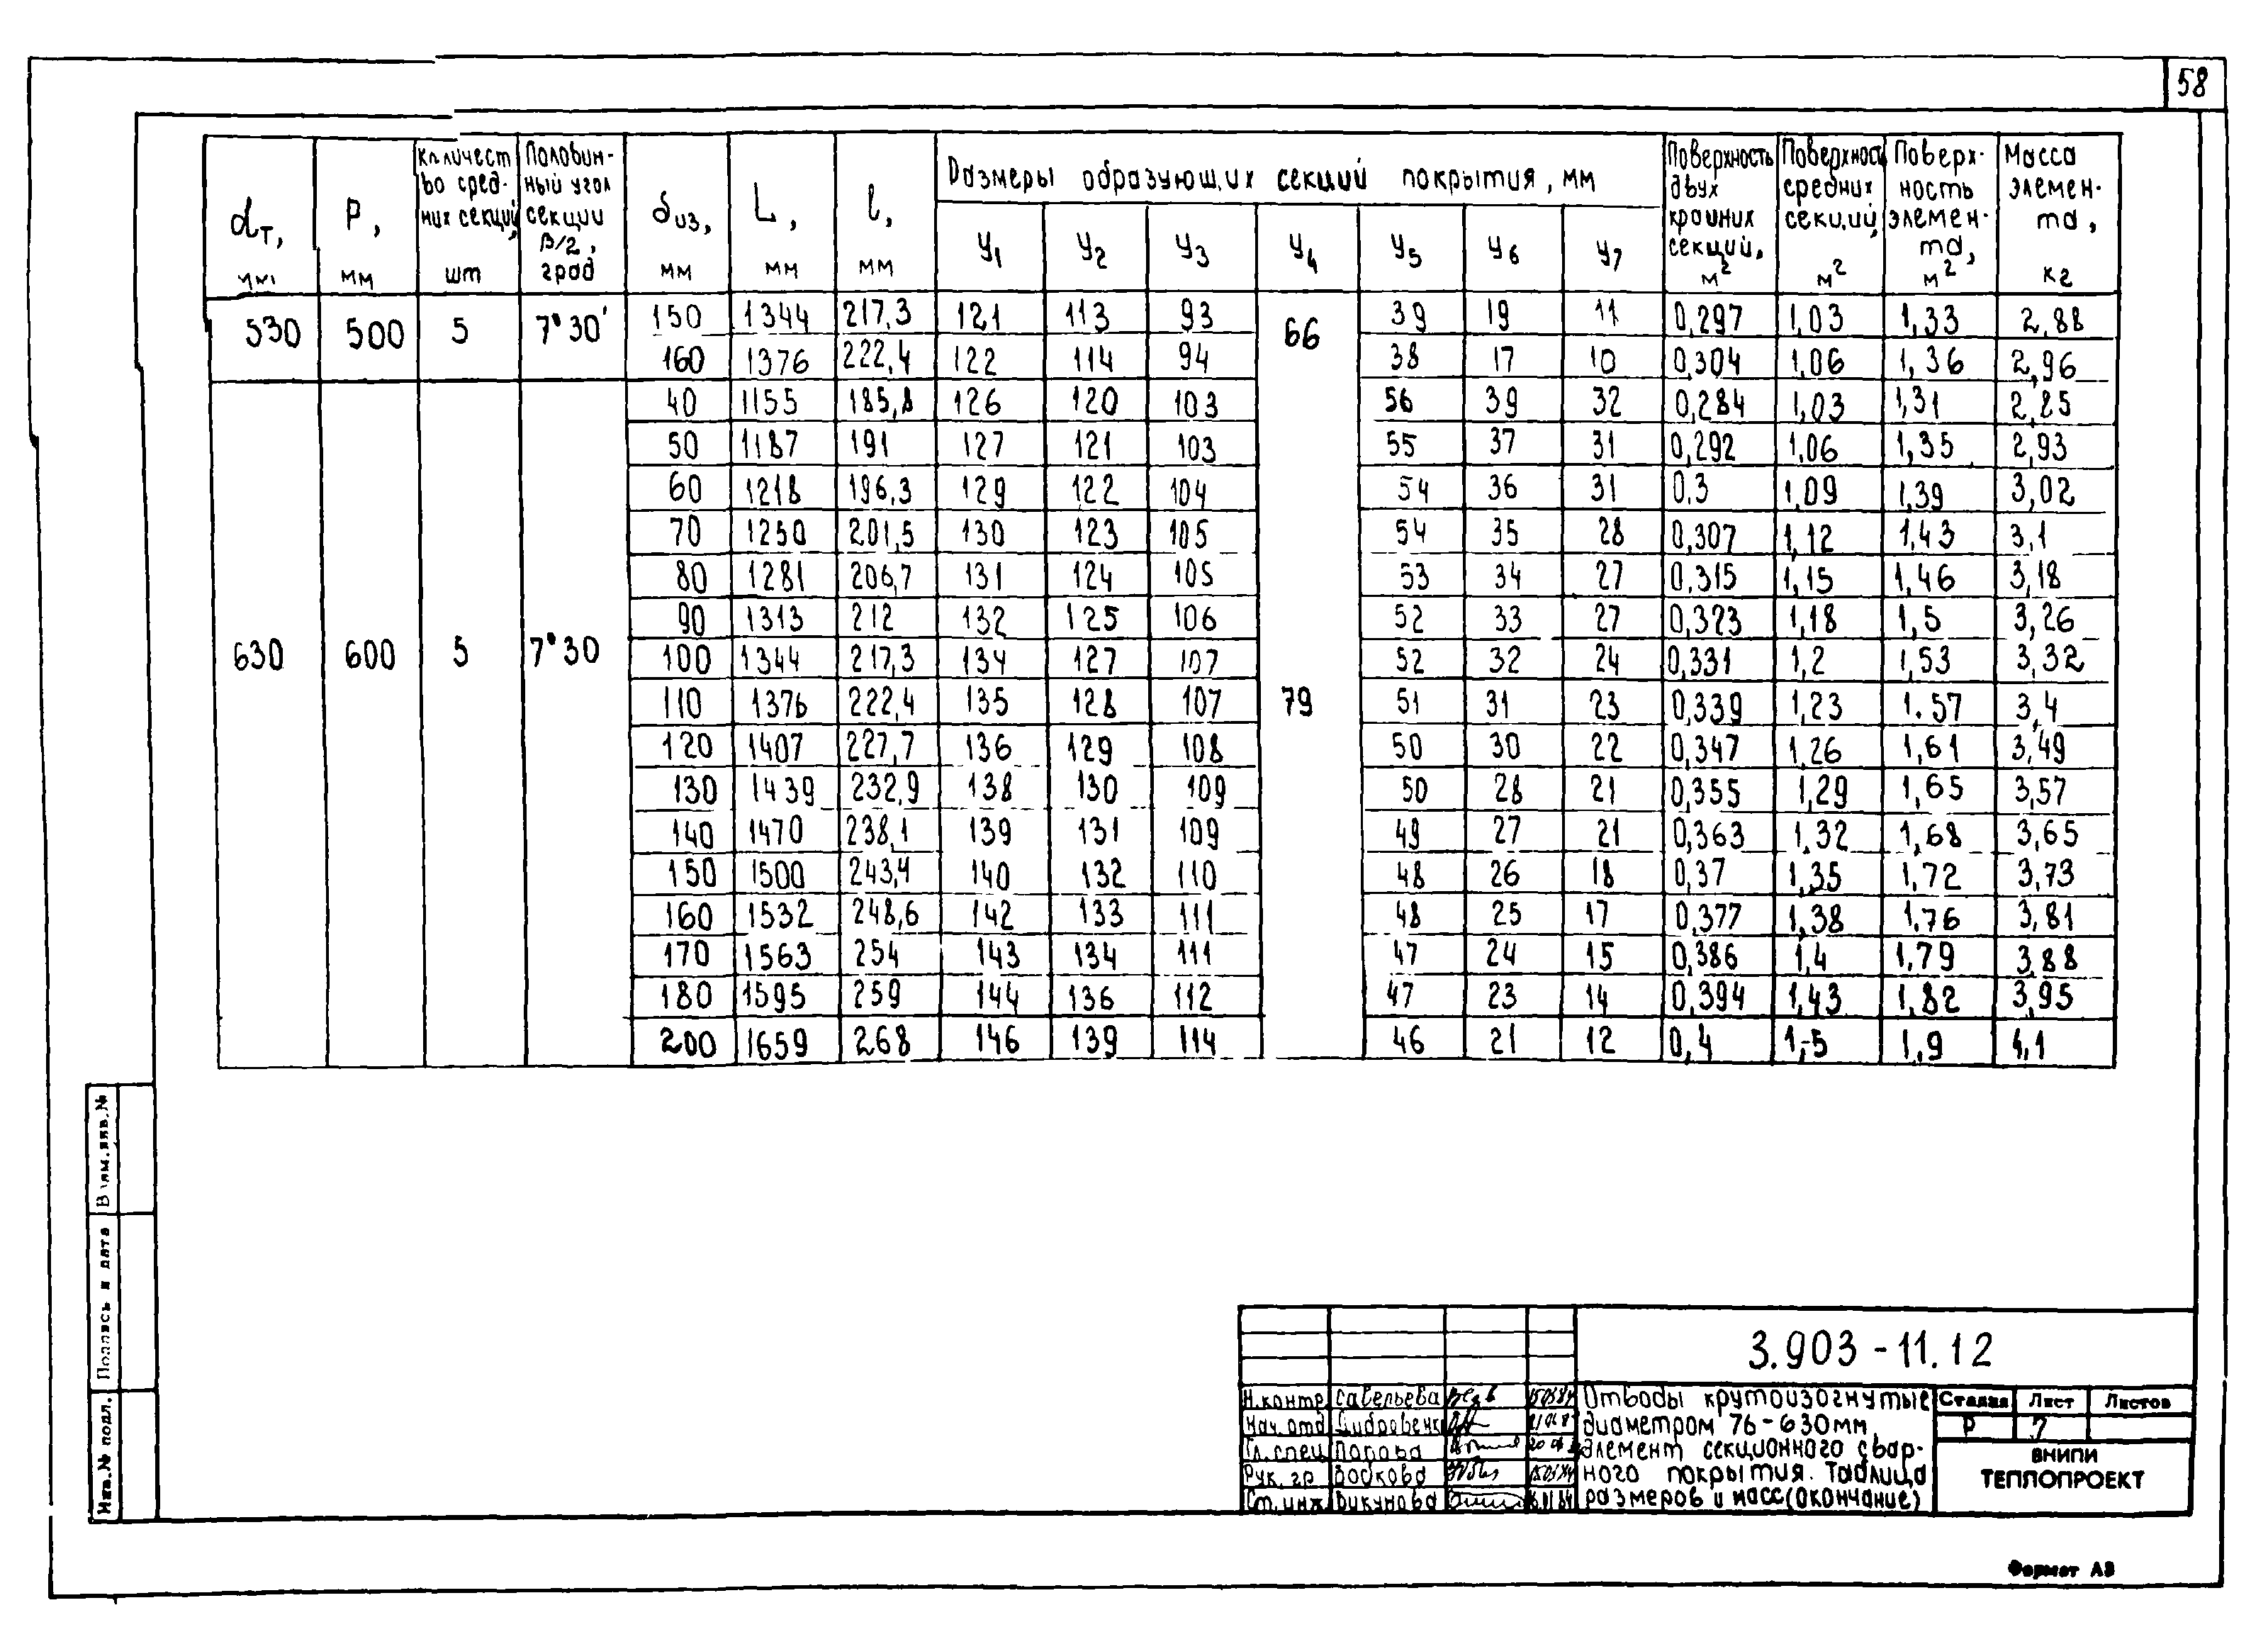 58
dт, мм
P, мм
Количест
во сред-
них секций,
шт
Половин-
ный угол
секции
β/2,
град
δиз, мм
L, мм
l, мм
Размеры образующих секций покрытия, мм
У1 У2 У3 У4 У5 У6 У7
Поверхность
двух
крайних
секций,
м²
Поверхност
средних
секций,
м²
Поверх-
ность
элемен-
та,
м²
Масса
элемен-
та,
кг
530 500 5 7°30' 150 1344 217,3 121 113 93 66 39 19 11 0,297 1,03 1,33 2,88
160 1376 222,4 122 114 94 38 17 10 0,304 1,06 1,36 2,96
630 600 5 7°30 79
40 1155 185,8 126 120 103 56 39 32 0,284 1,03 1,31 2,85
50 1187 191 127 121 103 55 37 31 0,292 1,06 1,35 2,93
60 1218 196,3 129 122 104 54 36 31 0,3 1,09 1,39 3,02
70 1250 201,5 130 123 105 54 35 28 0,307 1,12 1,43 3,1
80 1281 206,7 131 124 105 53 34 27 0,315 1,15 1,46 3,18
90 1313 212 132 125 106 52 33 27 0,323 1,18 1,5 3,26
100 1344 217,3 134 127 107 52 32 24 0,331 1,2 1,53 3,32
110 1376 222,4 135 128 107 51 31 23 0,339 1,23 1.57 3,4
120 1407 227,7 136 129 108 50 30 22 0,347 1,26 1,61 3,49
130 1439 232,9 138 130 109 50 28 21 0,355 1,29 1,65 3,57
140 1470 238,1 139 131 109 49 27 21 0,363 1,32 1,68 3,65
150 1500 243,4 140 132 110 48 26 18 0,37 1,35 1,72 3,73
160 1532 248,6 142 133 111 48 25 17 0,377 1,38 1,76 3,81
170 1563 254 143 134 111 47 24 15 0,386 1,4 1,79 3,88
180 1595 259 144 136 112 47 23 14 0,394 1,43 1,82 3,95
200 1659 268 146 139 114 46 21 12 0,4 1,5 1,9 4,1
Взам.инв.№
Подпись и дата
Инв.№ подл.
3.903-11.12
Н.контр. Савельева
Нач.отд
Гл.спец Попова
Рук.гр.
Ст.инж. Викунова
Отводы крутоизогнутые
диаметром 76-630мм,
элемент секционного свар-
ного покрытия. Таблица
размеров и масс(окончание)
Стадия Лист Листов
Р 7
ВНИПИ
ТЕПЛОПРОЕКТ
Формат А3